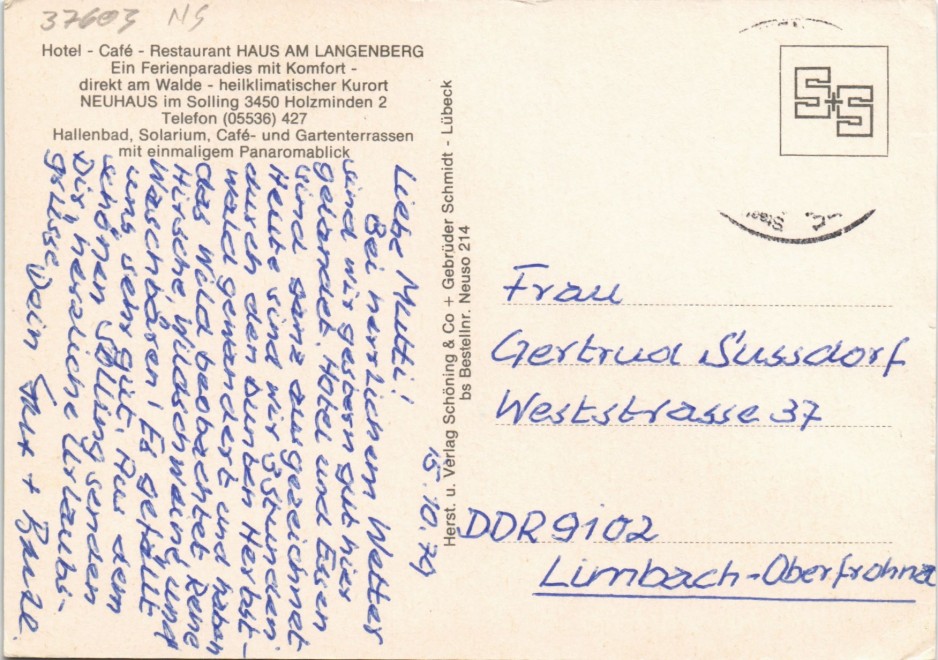 37603 NS
Hotel - Café - Restaurant HAUS AM LANGENBERG
Ein Ferienparadies mit Komfort -
direkt am Walde - heilklimatischer Kurort
NEUHAUS im Solling 3450 Holzminden 2
Telefon (05536) 427
Hallenbad, Solarium, Café- und Gartenterrassen
mit einmaligem Panaromablick
15.10.79
Liebe Mutti!
Bei herrlichem Wetter
sind wir gestern gut hier
gelandet. Hotel und Essen
sind ganz ausgezeichnet
Heute sind wir 3 Stunden
durch den bunten Herbst-
wald gewandert und haben
das Wild beobachtet Rehe
Hirsche, Wildschweine und
Waschbären! Es gefällt
uns sehr gut. Aus dem
schönen Solling senden
Dir herzliche Urlaubs-
grüsse Dein +
Herst. u. Verlag Schöning & Co + Gebrüder Schmidt - Lübeck
bs Bestellnr. Neuso 214
S+S
Frau
Gertrud Sussdorf
Weststrasse 37
DDR 9102
Limbach-Oberfrohna